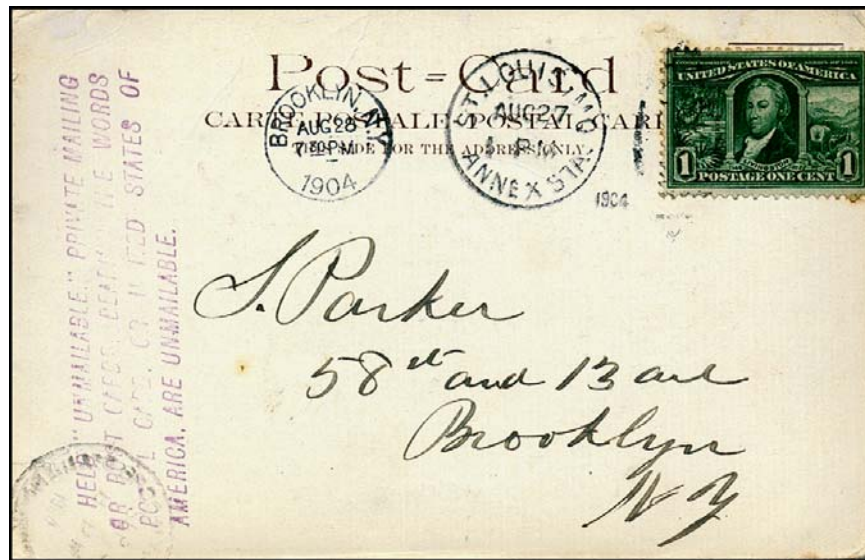 Post=Card
CARTE POSTALE POSTAL CARD
THIS SIDE FOR THE ADDRESS ONLY.
BROOKLYN, N.Y.
AUG 28
7 30 PM
1904
ST. LOUIS, MO.
AUG 27
PM
ANNEX STA.
1904
UNITED STATES OF AMERICA
LIVINGSTON
1 POSTAGE ONE CENT 1
HELD "UNMAILABLE." PRIVATE MAILING
OR POST CARDS, BEARING THE WORDS
POSTAL CARD, OR UNITED STATES OF
AMERICA, ARE UNMAILABLE.
S. Parker
58th and 13 ave
Brooklyn
N Y